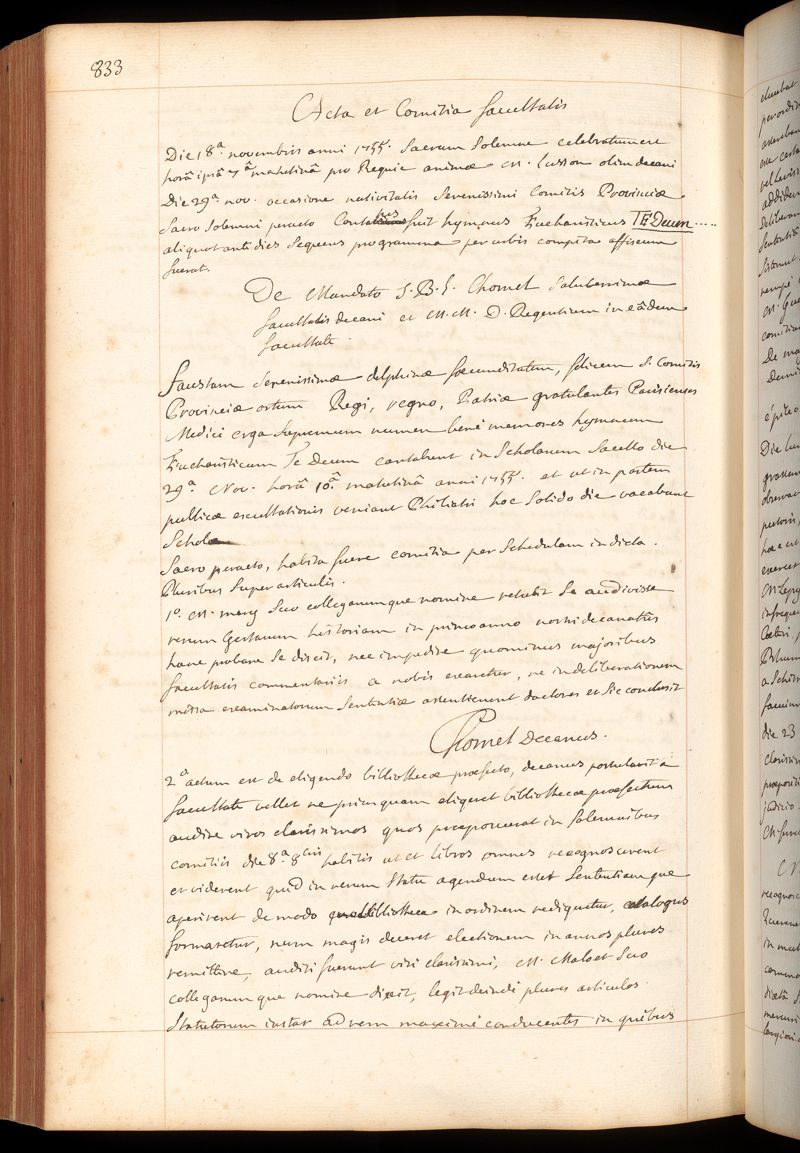 833
Acta et Comitia facultatis
Die 18.a novembris anni 1755. Sacrum Solemne celebratum est
horâ ipsâ 7.â matutinâ pro Requie animæ M. Cusson olim decani
Die 29.a nov. occasione nativitatis Serenissimi Comitis Provinciæ
Sacro Solemni peracto Cantatus fuit hymnus Eucharisticus TE Deum.....
aliquot ante dies Sequens programma per urbis compita affixum
fuerat.
De Mandato J. B. L. Chomel Saluberrimæ
facultatis decani et M. M. D. Regentium in eâdem
facultate.
Faustam Serenissimæ delphinæ fœcunditatem, felicem S. Comitis
Provinciæ ortum Regi, regno, Patriæ gratulantes Parisienses
Medici erga Supremum numen bené memores hymnum
Eucharisticum Te Deum cantabunt in Scholarum Sacello die
29.a Nov. horâ 10.â matutinâ anni 1755. et ut in partem
publicæ exultationis veniant Philiatri hoc Solido die vacabunt
Scholæ
Sacro peracto, habita fuere comitia per Schedulam indicta.
Pluribus Super articulis.
1.o M. mery Suo collegarumque nomine retulit Se audivisse
rerum Gestarum historiam in primo anno nostri decanatûs
hanc probare Se dixit, nec impedire quominus majoribus
facultatis commentariis a nobis exaretur, re in deliberationem
missa examinatorum Sententiæ assentierunt doctores et Sic conclusit
Chomel Decanus.
2.o actum est de eligendo bibliothecæ præfecto, decanus postulavit a
facultate vellet ne priusquam eligeret bibliothecæ præfectum
audire viros clarissimos quos præposuerat in Solemnibus
comitiis die 8.a 8bris habitis ut et libros omnes recognoscerent
et viderent quid in rerum Statu agendum esset Sententiamque
aperirent de modo quo bibliotheca in ordinem redigeretur, catalogus
formaretur, num magis deceret electionem in annos plures
remittere, auditi fuerunt viri clarissimi, M. Maloet Suo
collegarumque nomine dixit, legit deindé plures articulos
Statutorum instar ad rem maximé conducentes in quibus